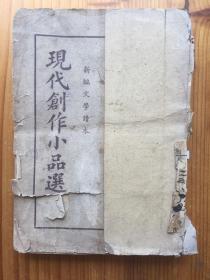 新編文學讀本
現代創作小品選